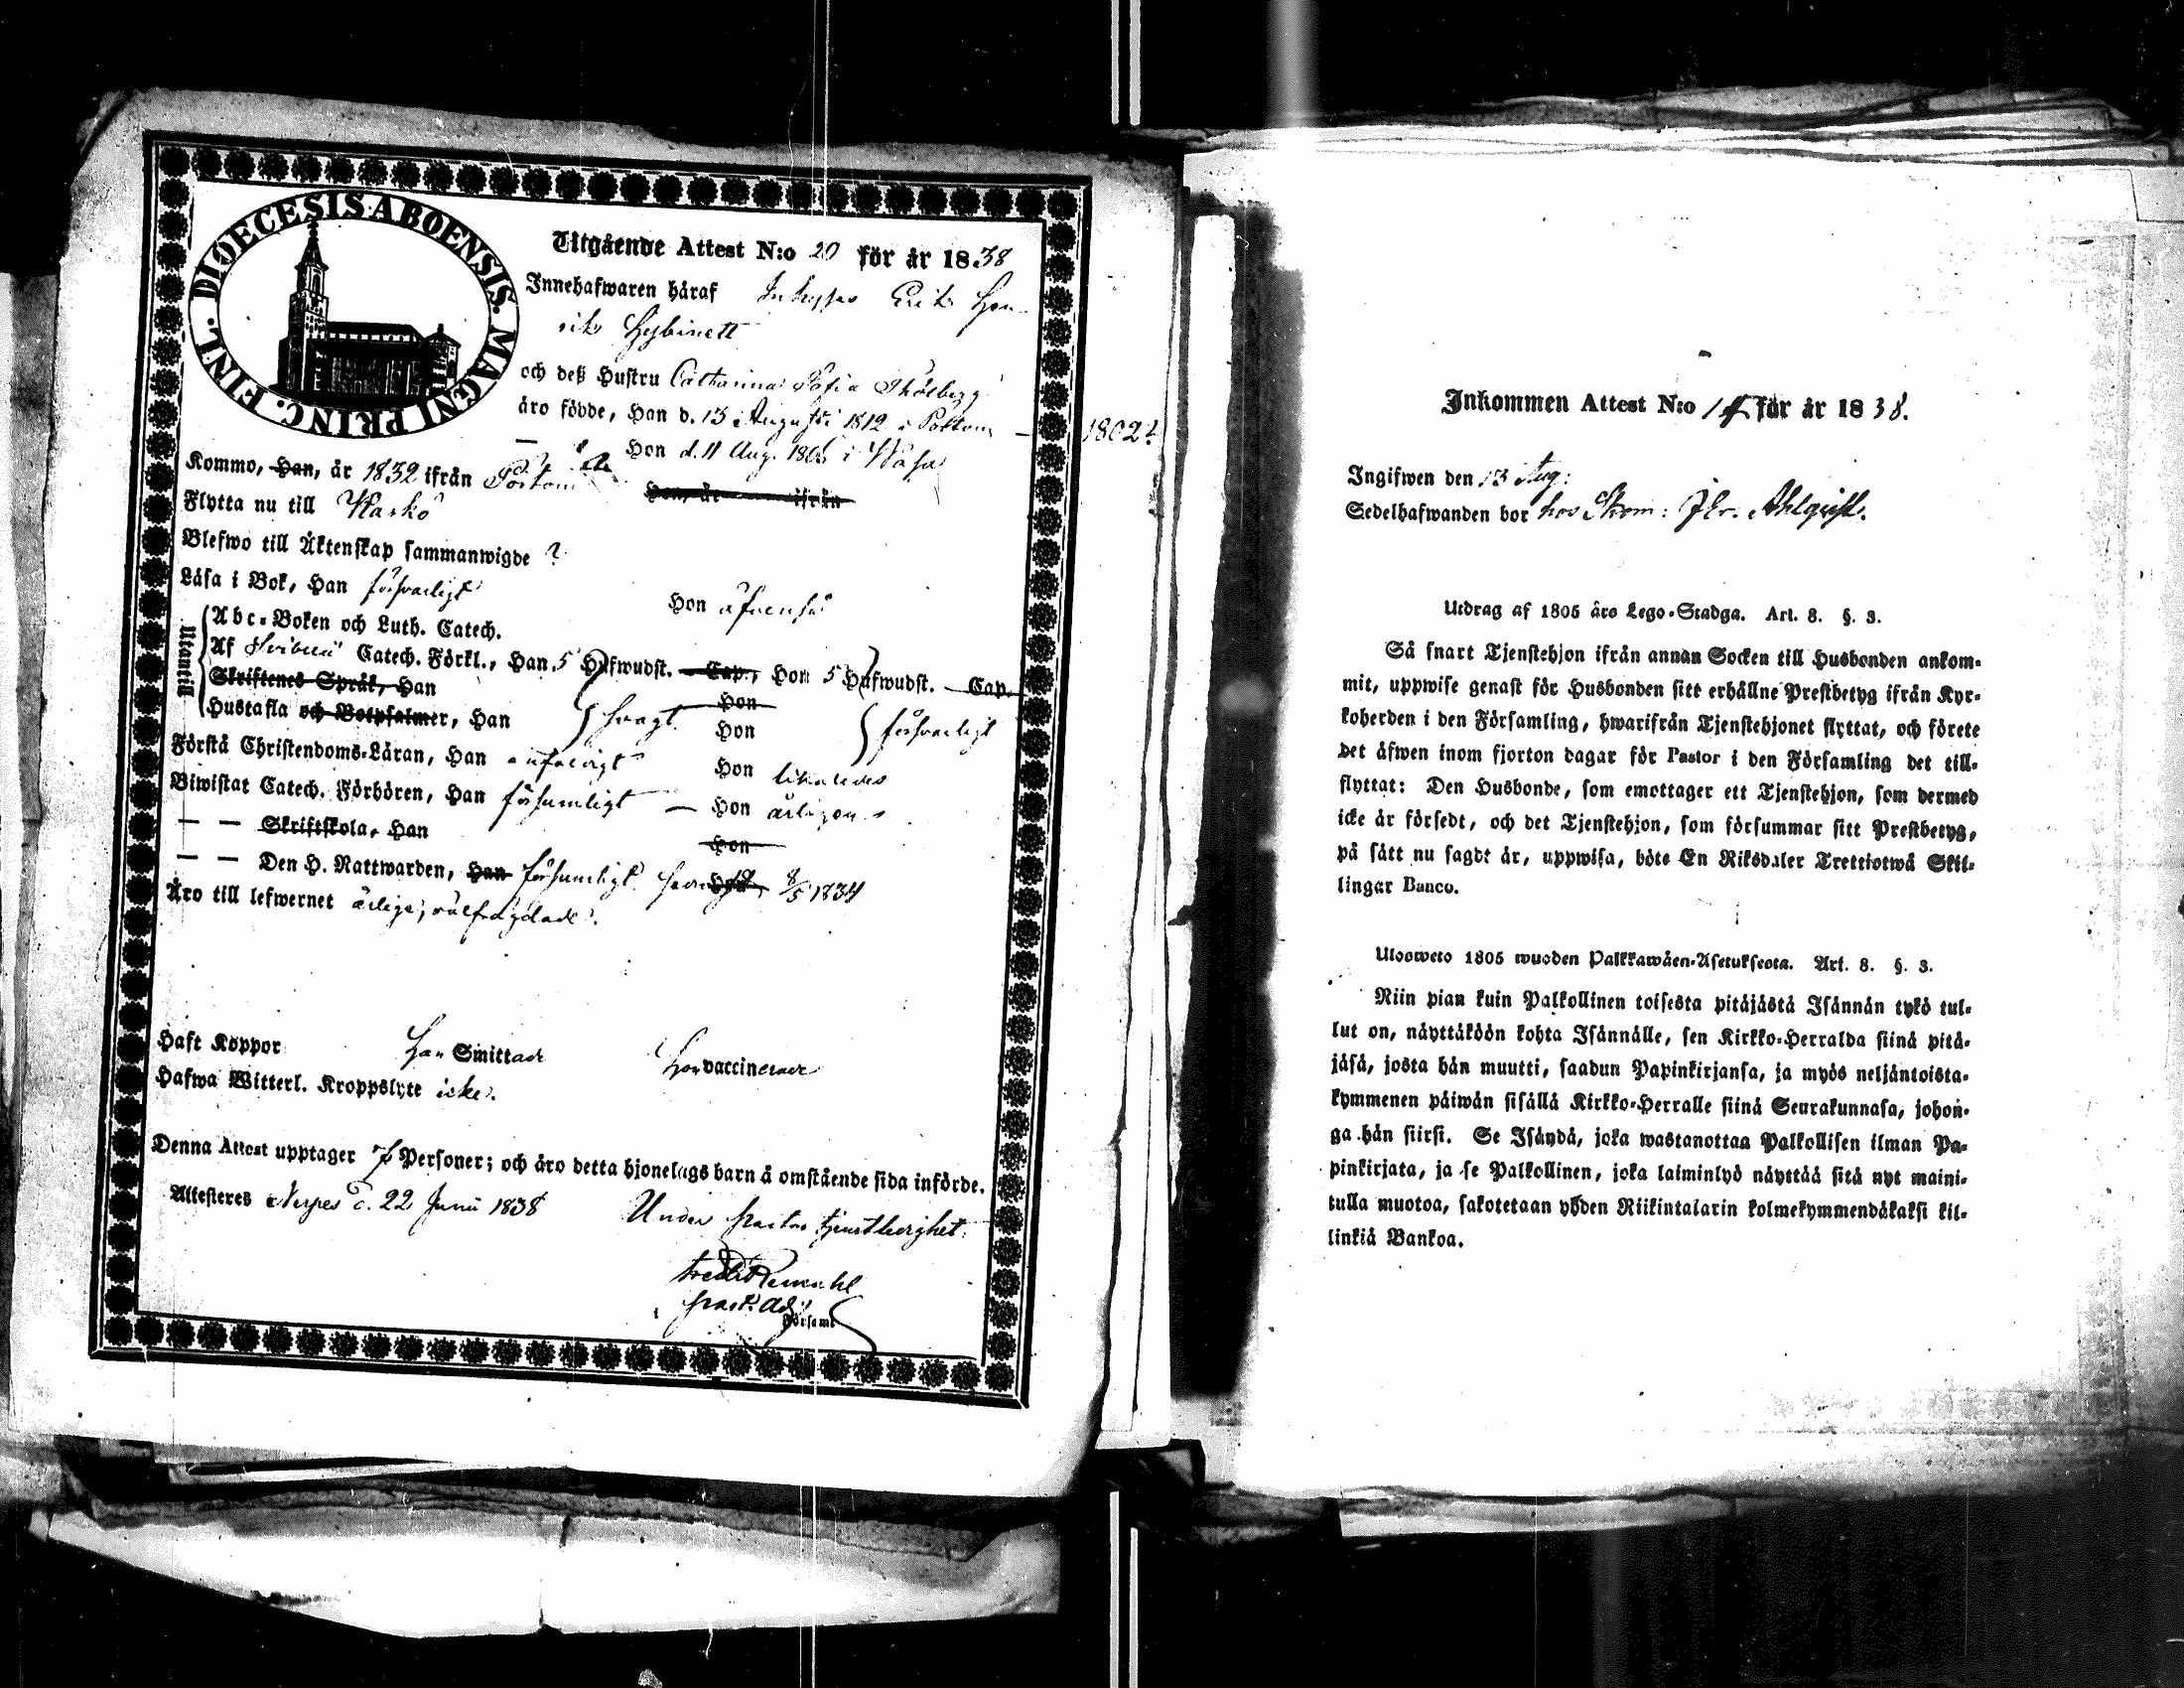 DIOECESIS ABOENSIS. MAGNI PRINC. FINL.
Utgående Attest N:o 20 för år 1838
Innehafwaren håraf Inhyses Erik Hen-
rik Hybinett
och deß Hustru Catharina Sofia
åro födde, Han d. 13 Augusti 1812 i Portom —
— Hon d. 11 Aug. 180 i Wasa
1802?
Kommo, Han, år 1832 ifrån Portom Hon, år ifrån
Flytta nu till Kaskö
Blefwo till Åktenskap sammanwigde ?
Låsa i Bok, Han försvarligt Hon äfvenså
Utantill
Abc-Boken och Luth. Catech.
Af Svibelii Catech. Förkl., Han 5 Hufwudst. — Cap., Hon 5 Hufwudst. — Cap.
Skriftenes Språk, Han Hon
Hustafla och Botpsalmer, Han svagt Hon försvarligt
Förstå Christendoms-Låran, Han enfaldigt Hon likaledes
Biwistat Catech. Förhören, Han försumligt — Hon årligen
— — Skriftskola, Han Hon
— — Den H. Nattwarden, Han försumligt Hon 8/5 1834
Åro till lefwernet ärlige, välfrägdade.
Haft Koppor Han Smittade Hon vaccinerade
Hafwa Witterl. Kroppslyte icke.
Denna Attest upptager 7 Personer; och åro detta hjonelags barn å omstående sida införde.
Attesteras Nerpes d. 22 Junii 1838 Under Pastors tjenstledighet
Past. Adj.
Församl
Inkommen Attest N:o 14 för år 1838.
Ingifwen den 13 Aug:
Sedelhafwanden bor hos Skom: Ahlqvist.
Utdrag af 1805 års Lego-Stadga. Art. 8. §. 3.
Så snart Tjenstehjon ifrån annan Socken till Husbonden ankom-
mit, uppwise genast för Husbonden sitt erhållne Prestbetyg ifrån Kyr-
koherden i den Församling, hwarifrån Tjenstehjonet flyttat, och förete
det åfwen inom fjorton dagar för Pastor i den Församling det till-
flyttat: Den Husbonde, som emottager ett Tjenstehjon, som dermed
icke år försedt, och det Tjenstehjon, som försummar sitt Prestbetyg,
på sått nu sagdt år, uppwisa, böte En Riksdaler Trettiotwå Skil-
lingar Banco.
Ulosweto 1805 wuoden Palkkawåen-Asetuksesta. Art. 8. §. 3.
Niin pian kuin Palkollinen toisesta pitåjåstå Isånnån tykö tul-
lut on, nåyttåköön kohta Isånnålle, sen Kirkko-Herralda siinå pitå-
jåså, josta hån muutti, saadun Papinkirjansa, ja myös neljåntoista-
kymmenen påiwån sisållå Kirkko-Herralle siinå Seurakunnasa, johon-
ga hån siirsi. Se Isåndå, joka wastanottaa Palkollisen ilman Pa-
pinkirjata, ja se Palkollinen, joka laiminlyö nåyttåå sitå nyt maini-
tulla muotoa, sakotetaan yhden Riikintalarin kolmekymmendåkaksi kil-
linkiå Bankoa.